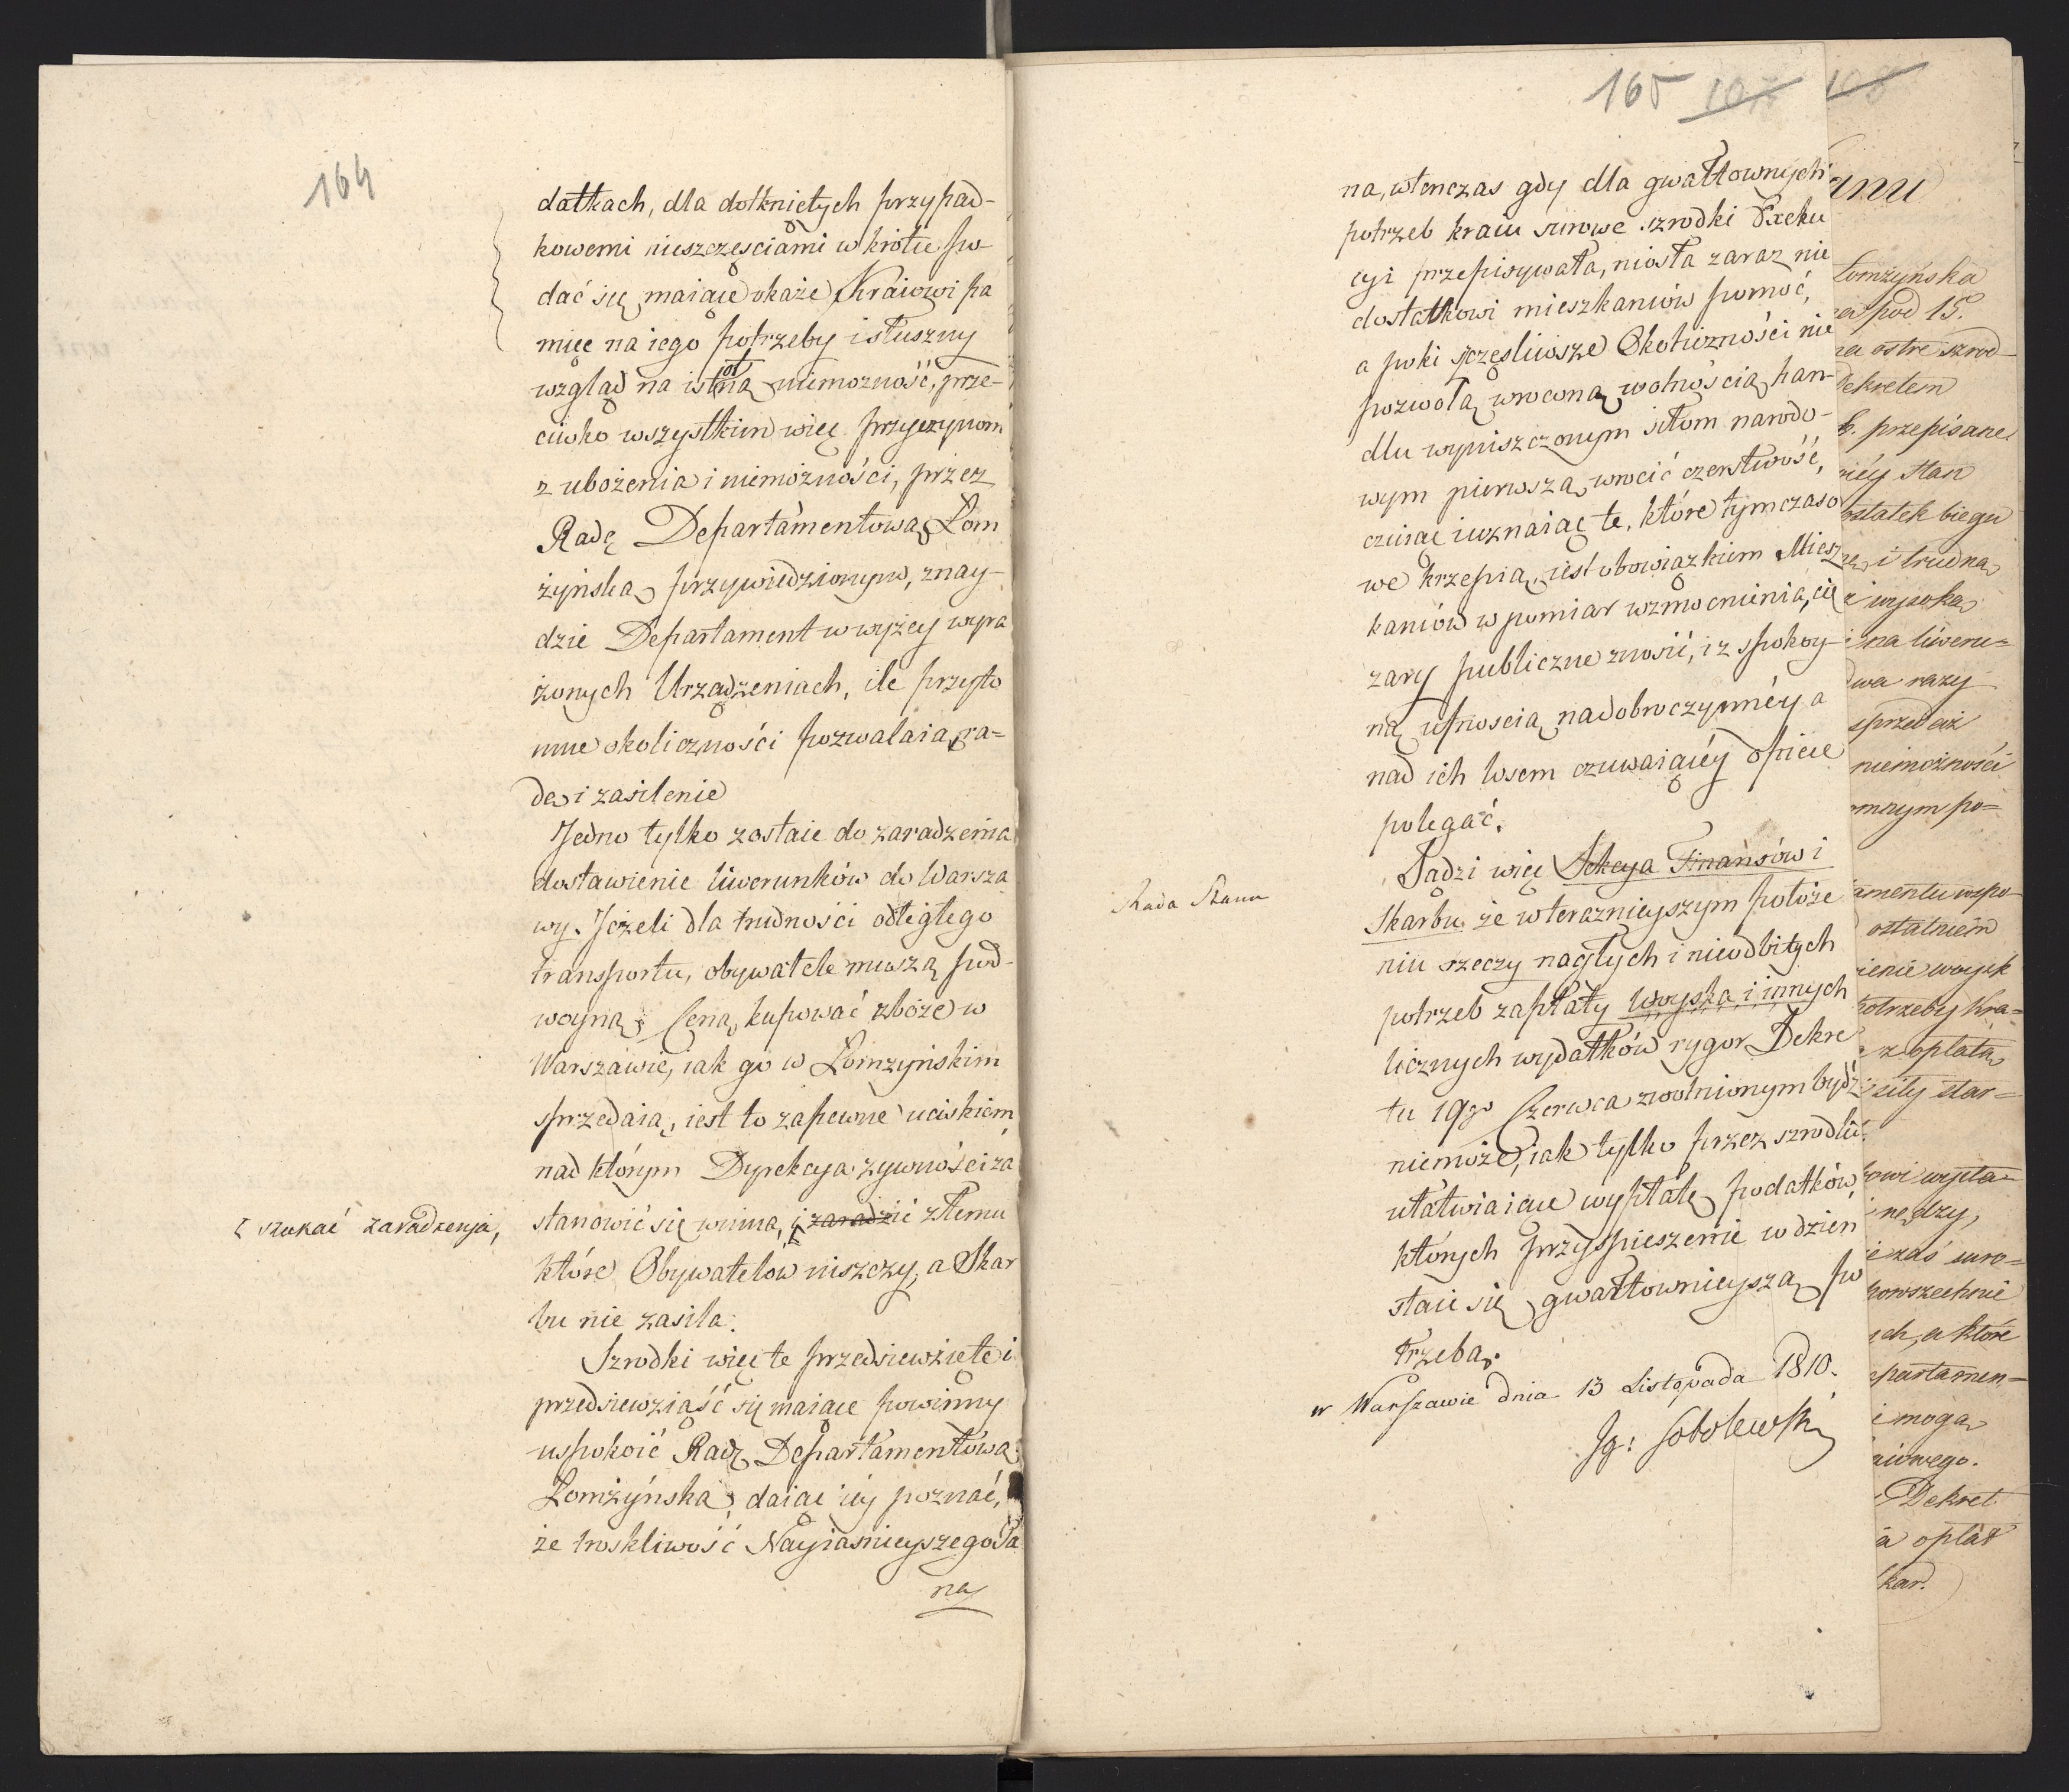 164
datkach, dla dotkniętych przypad-
kowemi nieszczęsciami w krótce po-
dać się maiące okaże Kraiowi pa
mięc na iego potrzeby i słuszny
wzgląd na istotną niemozność, prze-
ciwko wszystkim więc przyczynom
z ubożenia i niemożności, przez
Radę Departamentową Łom
żyńską przywiedzionym, znay-
dzie Departament w wyżey wyra
żonych Urządzeniach, ile przyto
mne okoliczności pozwalaią, ra-
dę i zasilenie
Jedno tylko zostaie do zaradzenia
dostawienie liwerunków do Warsza
wy. Jeżeli dla trudności odległego
transportu, obywatele muszą pod-
woyną Ceną kupować zboże w
Warszawie, iak go w Łomzyńskim
sprzedaią, iest to zapewne uciskiem
nad którym Dyrekcya zywności za
stanowić się winna, i zaradzić złemu
[ szukać zaradzenia,
które Obywatelów niszczy, a Skar
bu nie zasila.
Szrodki więc te przedsiewzięte i
przedsiewziąść się maiące powinny
uspokoić Radę Departamentową
Łomżyńską daiąc iey poznać,
że troskliwość Nayiasnieyszego Pa
na
165 105
na, wtenczas gdy dla gwałtownych
potrzeb kraiu surowe szrodki Exeku
cyi przepisywała, niosła zaraz nie
dostatkowi mieszkańców pomoć,
a poki szczęsliwsze Okoliczności nie
pozwolą wroconą wolnością han-
dlu wyniszczonym siłom narodo-
wym pierwszą wrócić czerstwość,
czuiąc i uznaiąc te, które tymczaso
we krzepią, iest obowiązkiem Miesz
kańców w pomiar wzmocnienia, cię
zary publiczne znosić, i z spokoy-
ną ufnoscią na dobroczynnéy a
nad ich losem czuwaiącéy opiece
polegać.
Sądzi więc Sekcya Finansów i
Rada Stanu
Skarbu że w teraznieyszym położe
niu rzeczy nagłych i nieodbitych
potrzeb zapłaty woyska i innych
licznych wydatków rygor Dekre
tu 19go Czerwca zwolnionym bydź
niemoże, iak tylko przez szrodki
ułatwiaiące wypłatę podatków
których przyspieszenie w dzień
staie się gwałtownieyszą po
trzebą.
w Warszawie dnia 13 Listopada 1810.
Jg: Sobolewski
anu
Łomżyńska
pod 15.
na ostre szrod-
Dekretem
przepisane
stan
ostatek biegu
i trudną
wysoką
na liweru=
dwa razy
sprzedaż
niemożności
mnym po=
amentu wspo-
ostatniém
ienie woysk
potrzeby kra=
z opłatą
siły star=
owi wypła=
nędzy,
zaś suro=
powszechnie
ch, a które
epartamen=
mogą
aiowego.
Dekret
opłat
kar.